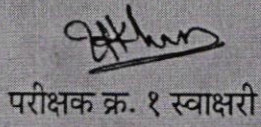 परीक्षक क्र. १ स्वाक्षरी